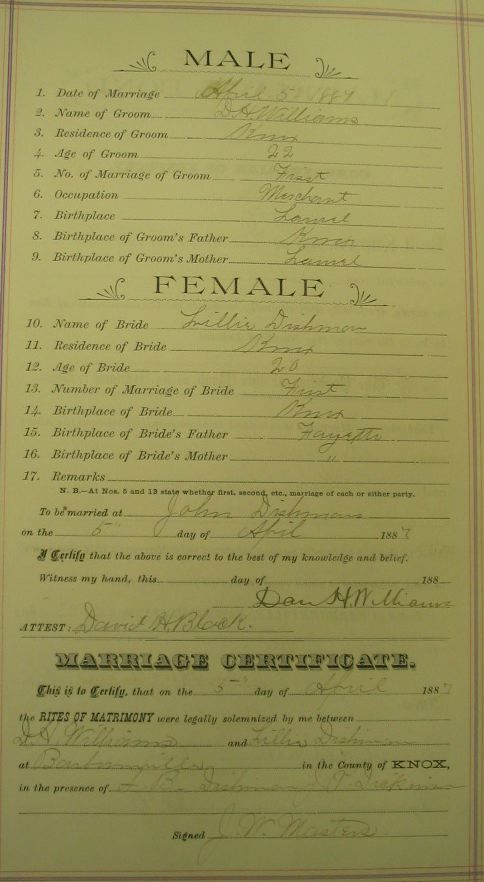 MALE
1. Date of Marriage April 5" 1887
2. Name of Groom D. H. Williams
3. Residence of Groom Knox
4. Age of Groom 22
5. No. of Marriage of Groom First
6. Occupation Merchant
7. Birthplace Laurel
8. Birthplace of Groom's Father Knox
9. Birthplace of Groom's Mother Laurel
FEMALE
10. Name of Bride Lillie Dishman
11. Residence of Bride Knox
12. Age of Bride 20
13. Number of Marriage of Bride First
14. Birthplace of Bride Knox
15. Birthplace of Bride's Father Fayette
16. Birthplace of Bride's Mother "
17. Remarks
N. B.—At Nos. 5 and 13 state whether first, second, etc., marriage of each or either party.
To be married at John Dishman
on the 5" day of April 1887
I Certify that the above is correct to the best of my knowledge and belief.
Witness my hand, this day of 188
Dan H. Williams
ATTEST: David H. Black.
MARRIAGE CERTIFICATE.
This is to Certify, that on the 5" day of April 1887
the RITES OF MATRIMONY were legally solemnized by me between
D. H. Williams and Lillie Dishman
at Barbourville in the County of KNOX,
in the presence of A. B. Dishman
Signed J. W. Masters